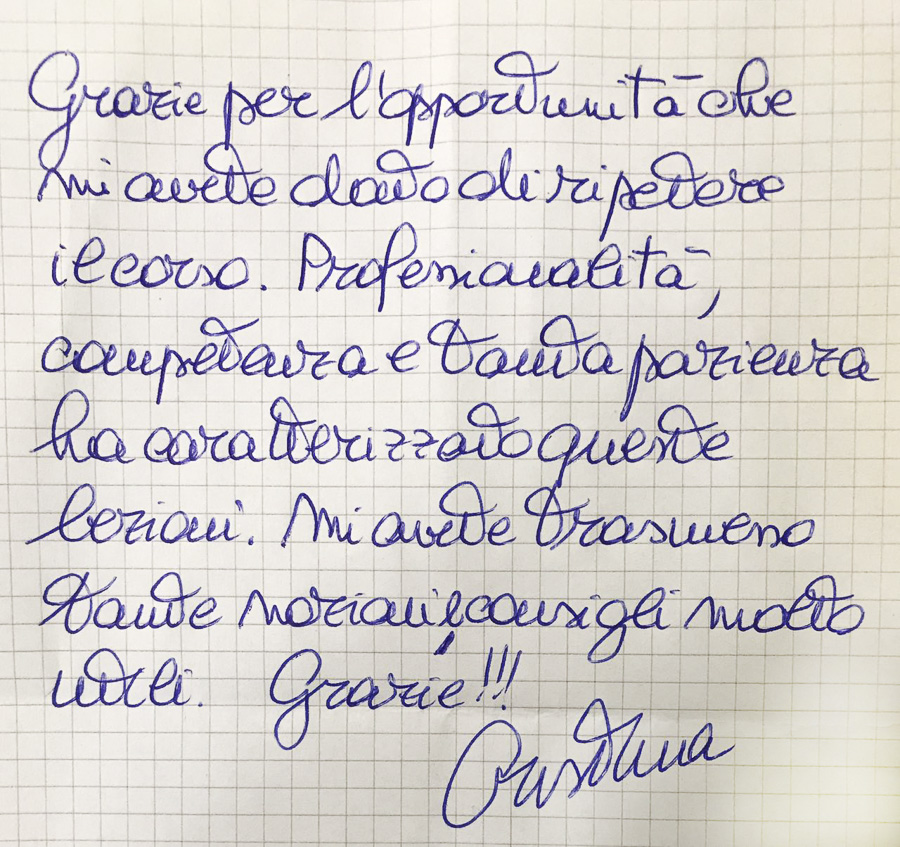 Grazie per l'opportunità che
mi avete dato di ripetere
il corso. Professionalità,
competenza e tanta pazienza
ha caratterizzato queste
lezioni. Mi avete trasmesso
tante nozioni e consigli molto
utili. Grazie!!!
Cristina